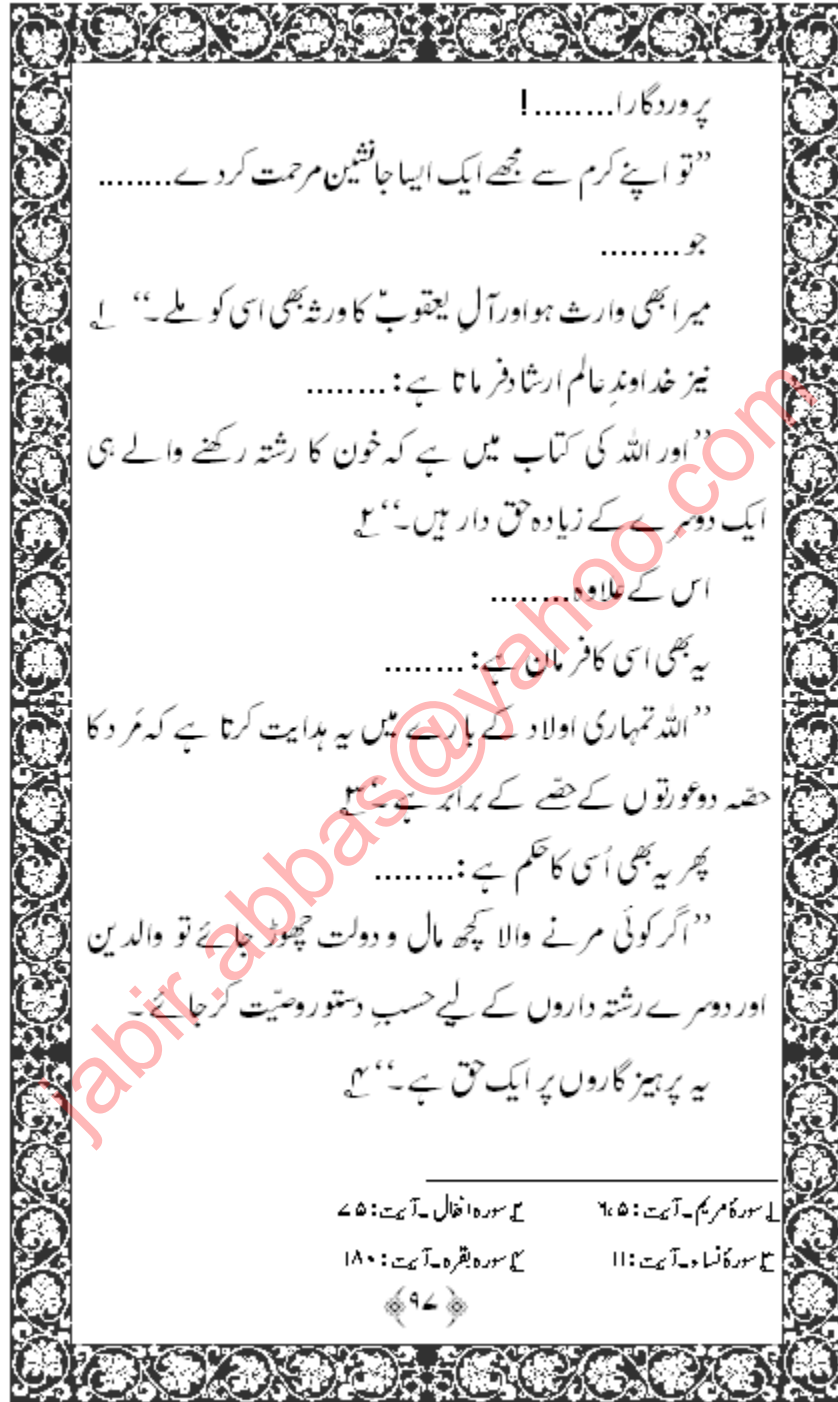 پروردگارا........!
”تو اپنے کرم سے مجھے ایک ایسا جانشین مرحمت کردے........
جو........
میرا بھی وارث ہو اور آلِ یعقوبؑ کا ورثہ بھی اسی کو ملے۔“ ۱؎
نیز خداوندِ عالم ارشاد فرماتا ہے:........
”اور اللہ کی کتاب میں ہے کہ خون کا رشتہ رکھنے والے ہی
ایک دوسرے کے زیادہ حق دار ہیں۔“ ۲؎
اس کے علاوہ........
یہ بھی اسی کا فرمان ہے:........
”اللہ تمہاری اولاد کے بارے میں یہ ہدایت کرتا ہے کہ مَرد کا
حصّہ دو عورتوں کے حصّے کے برابر ہے۔“ ۳؎
پھر یہ بھی اُسی کا حکم ہے:........
”اگر کوئی مرنے والا کچھ مال و دولت چھوڑ جائے تو والدین
اور دوسرے رشتہ داروں کے لیے حسبِ دستور وصیّت کرجائے۔
یہ پرہیز گاروں پر ایک حق ہے۔“ ۴؎
۱؎ سورۂ مریم۔ آیت: ۵،۶ ۲؎ سورہ انفال۔ آیت: ۷۵
۳؎ سورۂ نساء۔ آیت: ۱۱ ۴؎ سورہ بقرہ۔ آیت: ۱۸۰
﴿۹۷﴾
jabir.abbas@yahoo.com